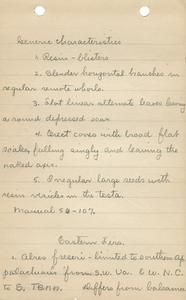 Generic Characteristics
1. Resin-blisters
2. Slender horizontal branches in
regular remote whorls.
3. Flat linear alternate leaves leaving
a round depressed scar.
4. Erect cones with broad flat
scales, falling singly and leaving the
naked axis.
5. Irregular large seeds with
resin vesicles in the testa.
Manual 56-107.
Eastern Firs.
1. Abies fraseri - limited to southern Ap-
palachians from S.W. Va. & W. N.C.
to E. Tenn. Differs from balsamea